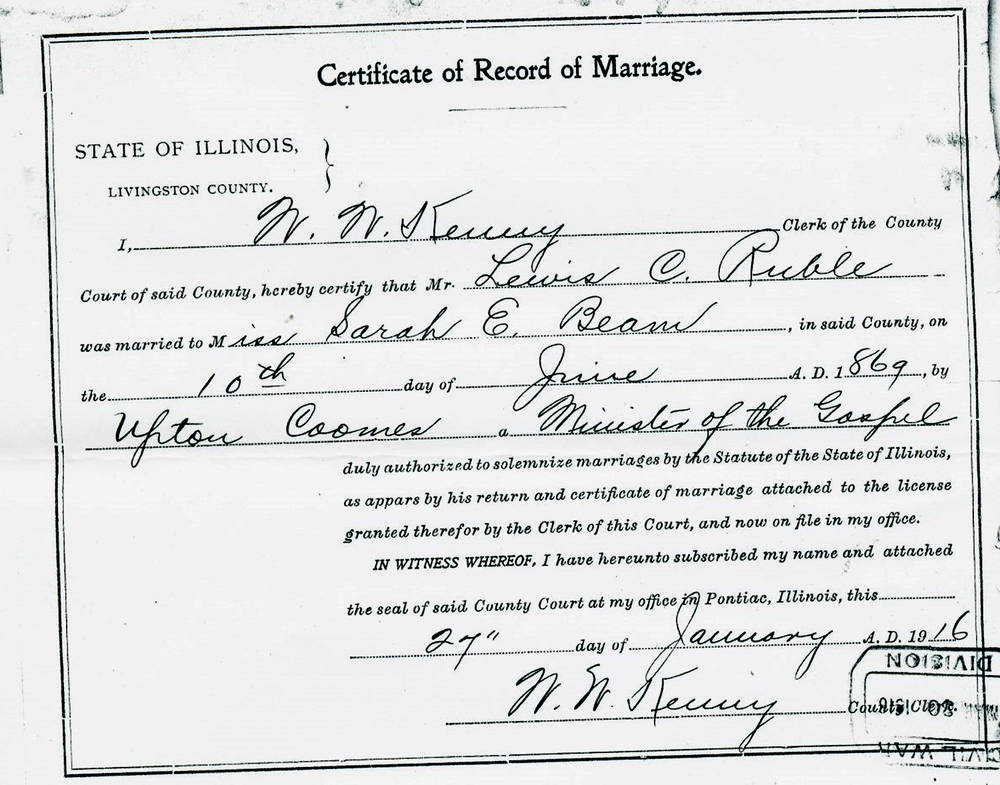 Certificate of Record of Marriage.
STATE OF ILLINOIS,
LIVINGSTON COUNTY.
I, W. W. Kenny Clerk of the County
Court of said County, hereby certify that Mr. Lewis C. Ruble
was married to Miss Sarah E. Beam, in said County, on
the 10th day of June A. D. 1869, by
Upton Coomes a Minister of the Gospel
duly authorized to solemnize marriages by the Statute of the State of Illinois,
as appars by his return and certificate of marriage attached to the license
granted therefor by the Clerk of this Court, and now on file in my office.
IN WITNESS WHEREOF, I have hereunto subscribed my name and attached
the seal of said County Court at my office in Pontiac, Illinois, this
27" day of January A. D. 1916
W. W. Kenny County Clerk.
DIVISION
CIVIL WAR